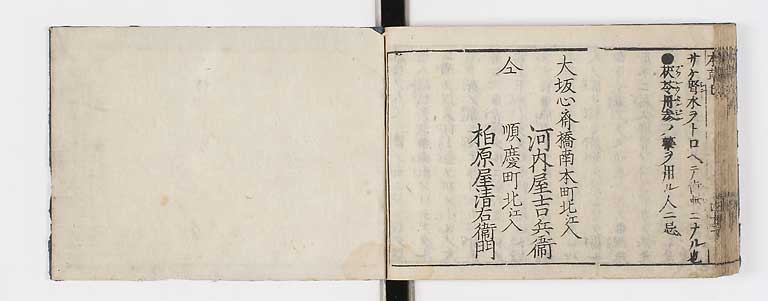 サケ腎水ヲトロヘテ
ニナル也
●茯苓丹参ノ藥ヲ用ル人ニ忌
大坂心斎橋南本町北江入
河内屋吉兵衞
仝 順慶町北江入
柏原屋清右衞門